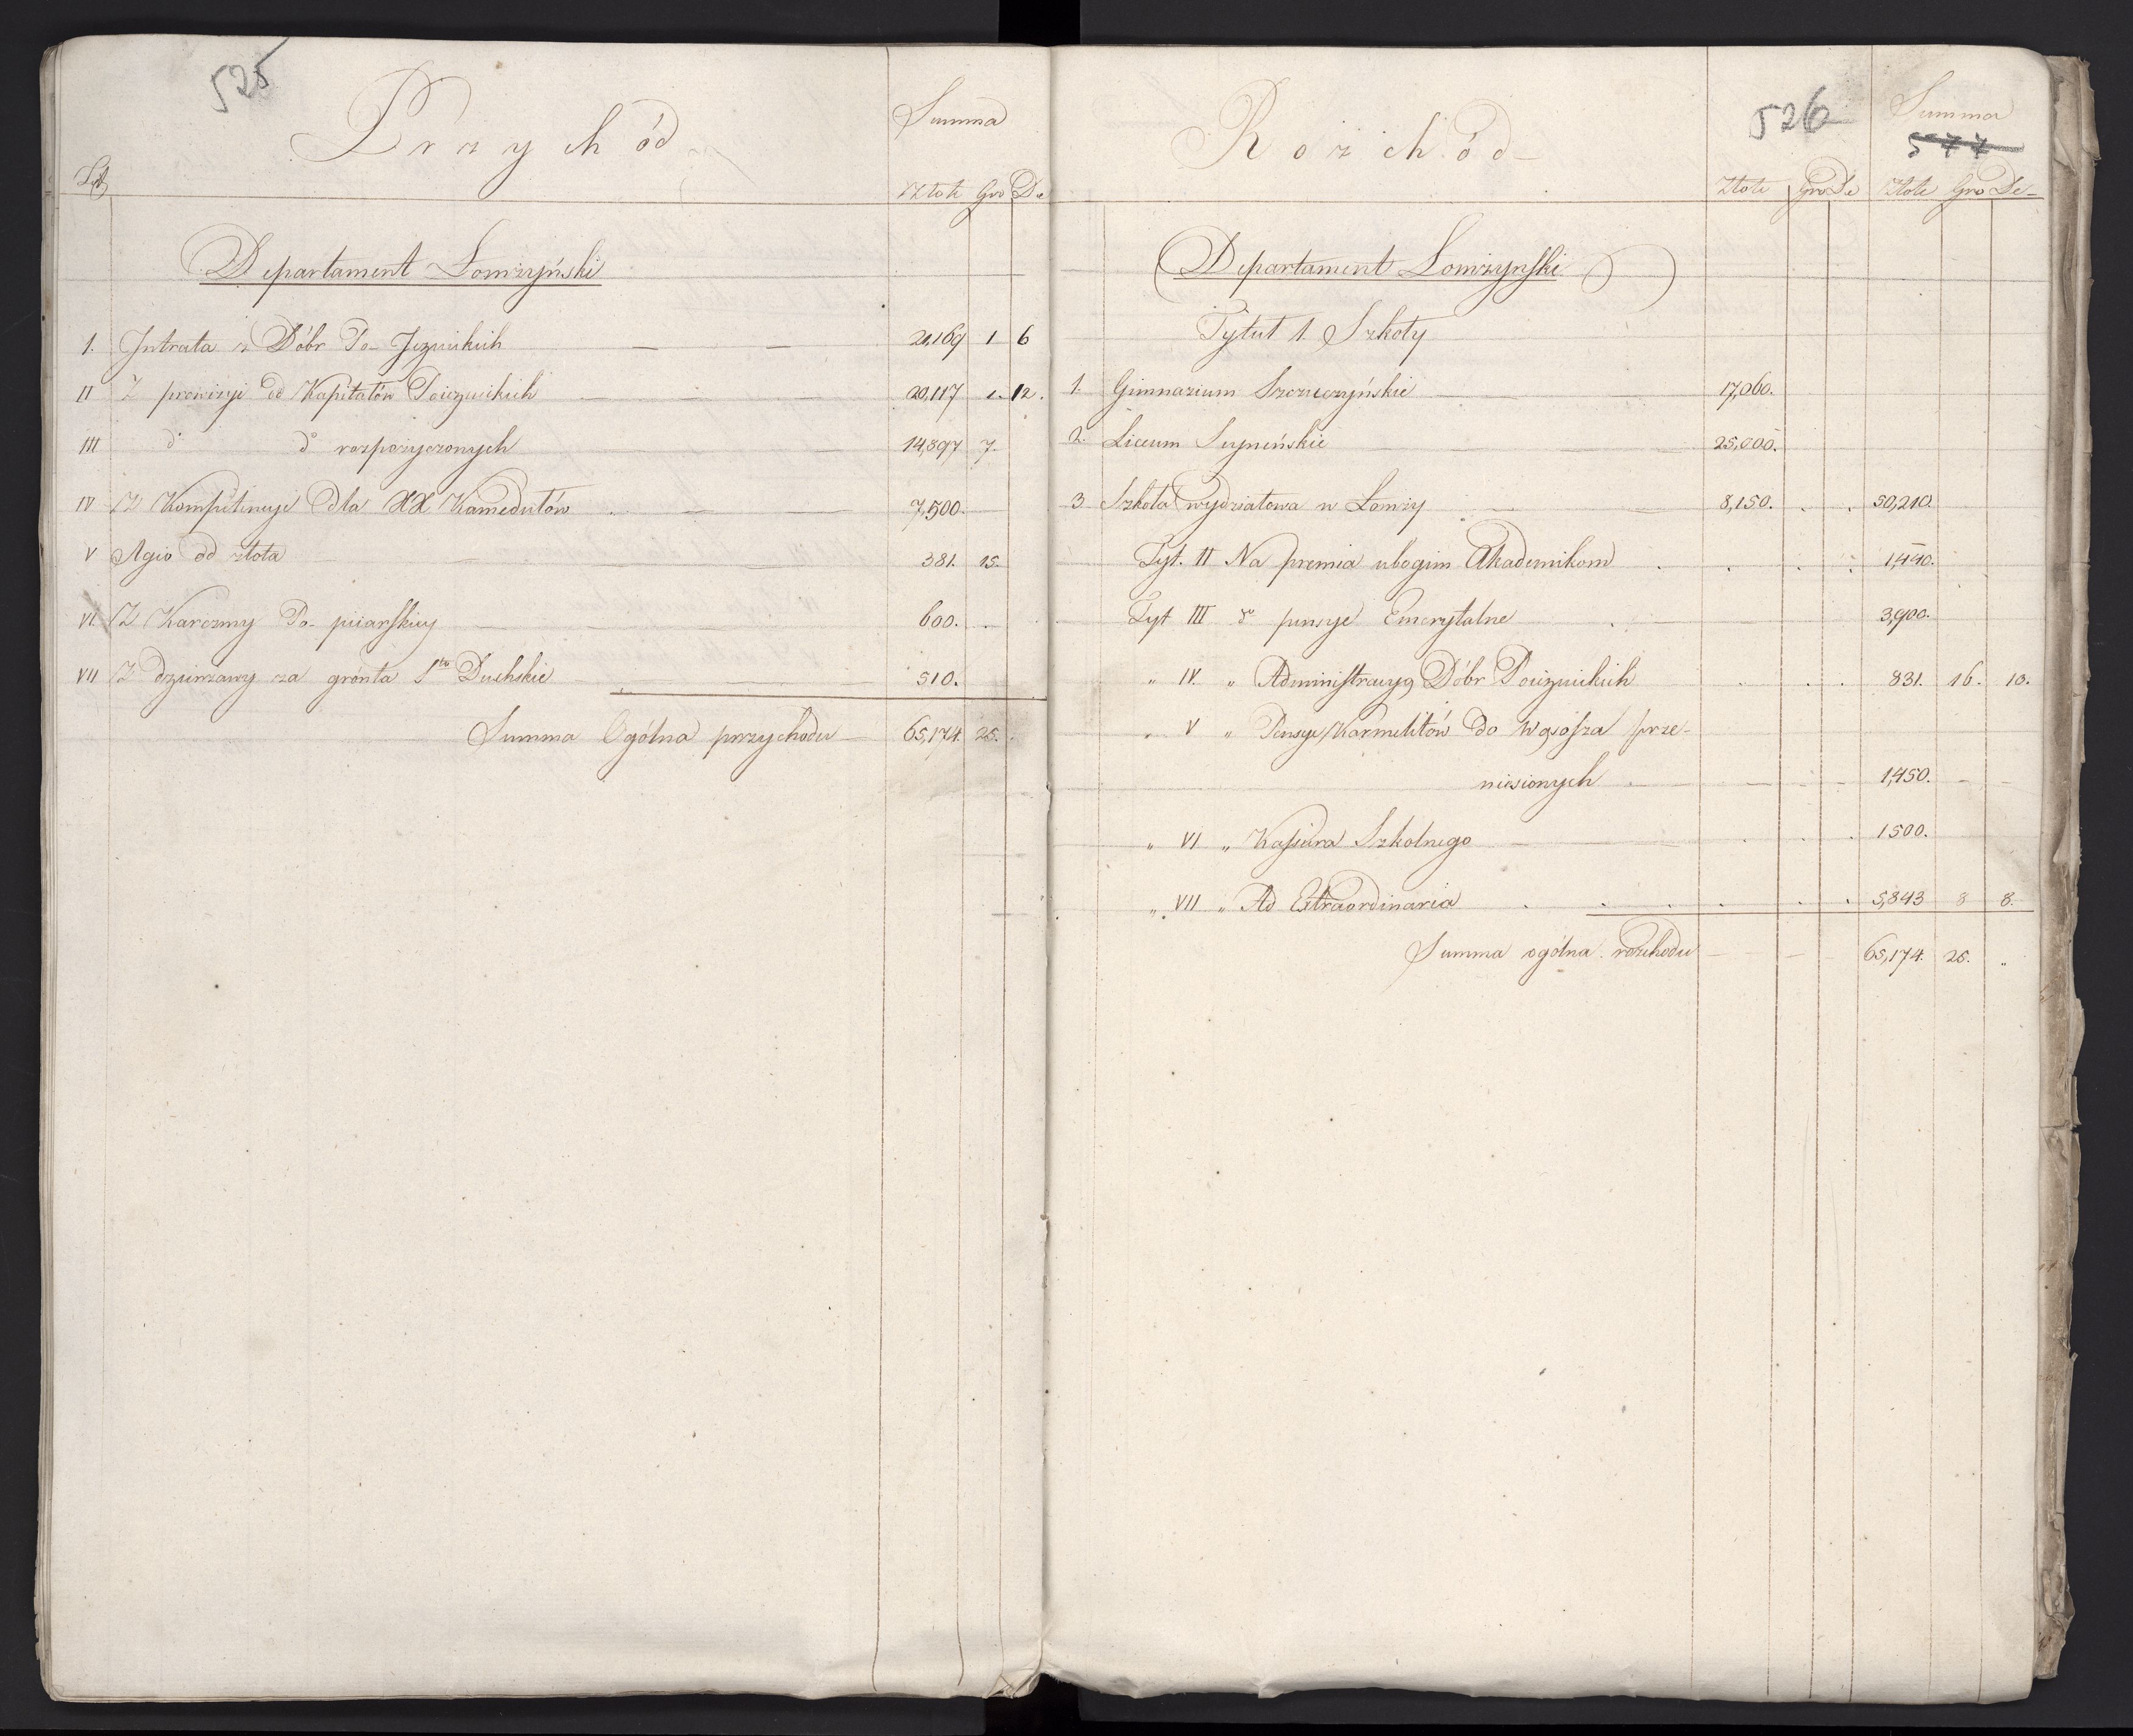 525
Przychód
Summa
Lit
Złote Gro De
Departament Łomżyński
1. Jntrata z Dóbr Po-Jezuickich 21,169 1 6
II Z prowizyi od Kapitałów Pojezuickich 20,117 1. 12.
III do do rozpożyczonych 14,897 7.
IV Z Kompetencyi dla XX Kamedułów 7,500.
V Agio od złota 381. 15.
VI. Z Karczmy Po-pijarskiey 600.
VII Z dzierzawy za grónta Sto Duchskie 510.
Summa Ogólna przychodu 65,174. 25.
526
Rozchód
Summa
577
Złote Gro De Złote Gro De
Departament Łomżynski
Tytuł 1. Szkoły
1. Gimnazium Szczuczyńskie 17,060.
2. Liceum Seyneńskie 25,000.
3 Szkoła wydziałowa w Łomży 8,150. 50,210.
Tyt. II Na premia ubogim Akademikom 1,440.
Tyt III do pensye Emerytalne 3,900.
" IV. " Administracyą Dóbr Pojezuickich 831. 16. 10.
" V " Pensye Karmelitów do Wąsosza prze-
niesionych 1,450.
" VI " Kassiera Szkolnego 1500.
" VII " Ad Extraordinaria 5,843 8 8.
Summa ogólna rozchodu 65,174. 25. "